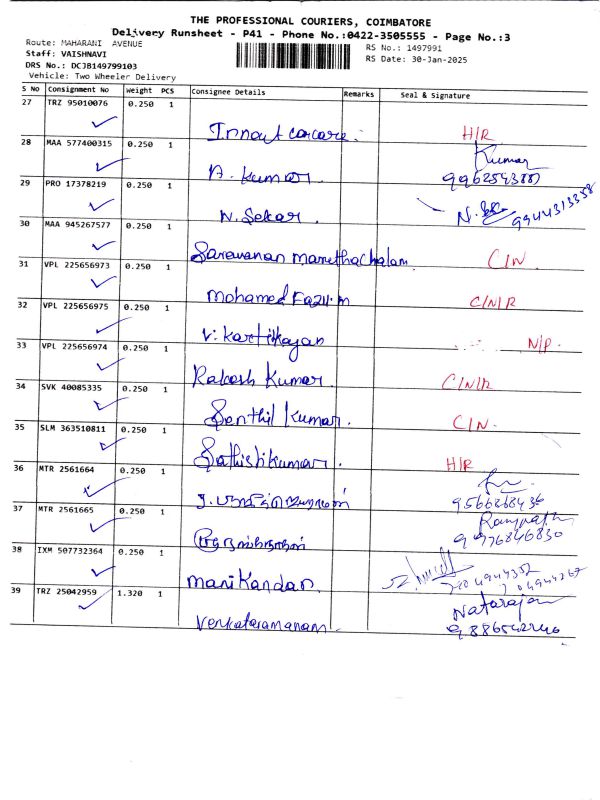 THE PROFESSIONAL COURIERS, COIMBATORE
Delivery Runsheet - P41 - Phone No.:0422-3505555 - Page No.:3
Route: MAHARANI AVENUE
RS No.: 1497991
Staff: VAISHNAVI
RS Date: 30-Jan-2025
DRS No.: DCJB149799103
Vehicle: Two Wheeler Delivery
S No Consignment No Weight PCS Consignee Details Remarks Seal & Signature
27 TRZ 95010076 0.250 1
Innout carcare. H/R
28 MAA 577400315 0.250 1
A. Kumar. Kumar
29 PRO 17378219 0.250 1
N. Sekar. 9944313358
30 MAA 945267577 0.250 1
Saravanan Maruthachalam C/N.
31 VPL 225656973 0.250 1
Mohamed Fazil.m C/N/R
32 VPL 225656975 0.250 1
V. Kartikayan N/P.
33 VPL 225656974 0.250 1
Rakesh Kumar. C/N/R
34 SVK 40085335 0.250 1
Senthil Kumar. C/N.
35 SLM 363510811 0.250 1
Sathishkumar. H/R
36 MTR 2561664 0.250 1
9566268436
37 MTR 2561665 0.250 1
9976846830
38 IXM 507732364 0.250 1
Manikandan.
39 TRZ 25042959 1.320 1
Natarajan
Venkataramanam.